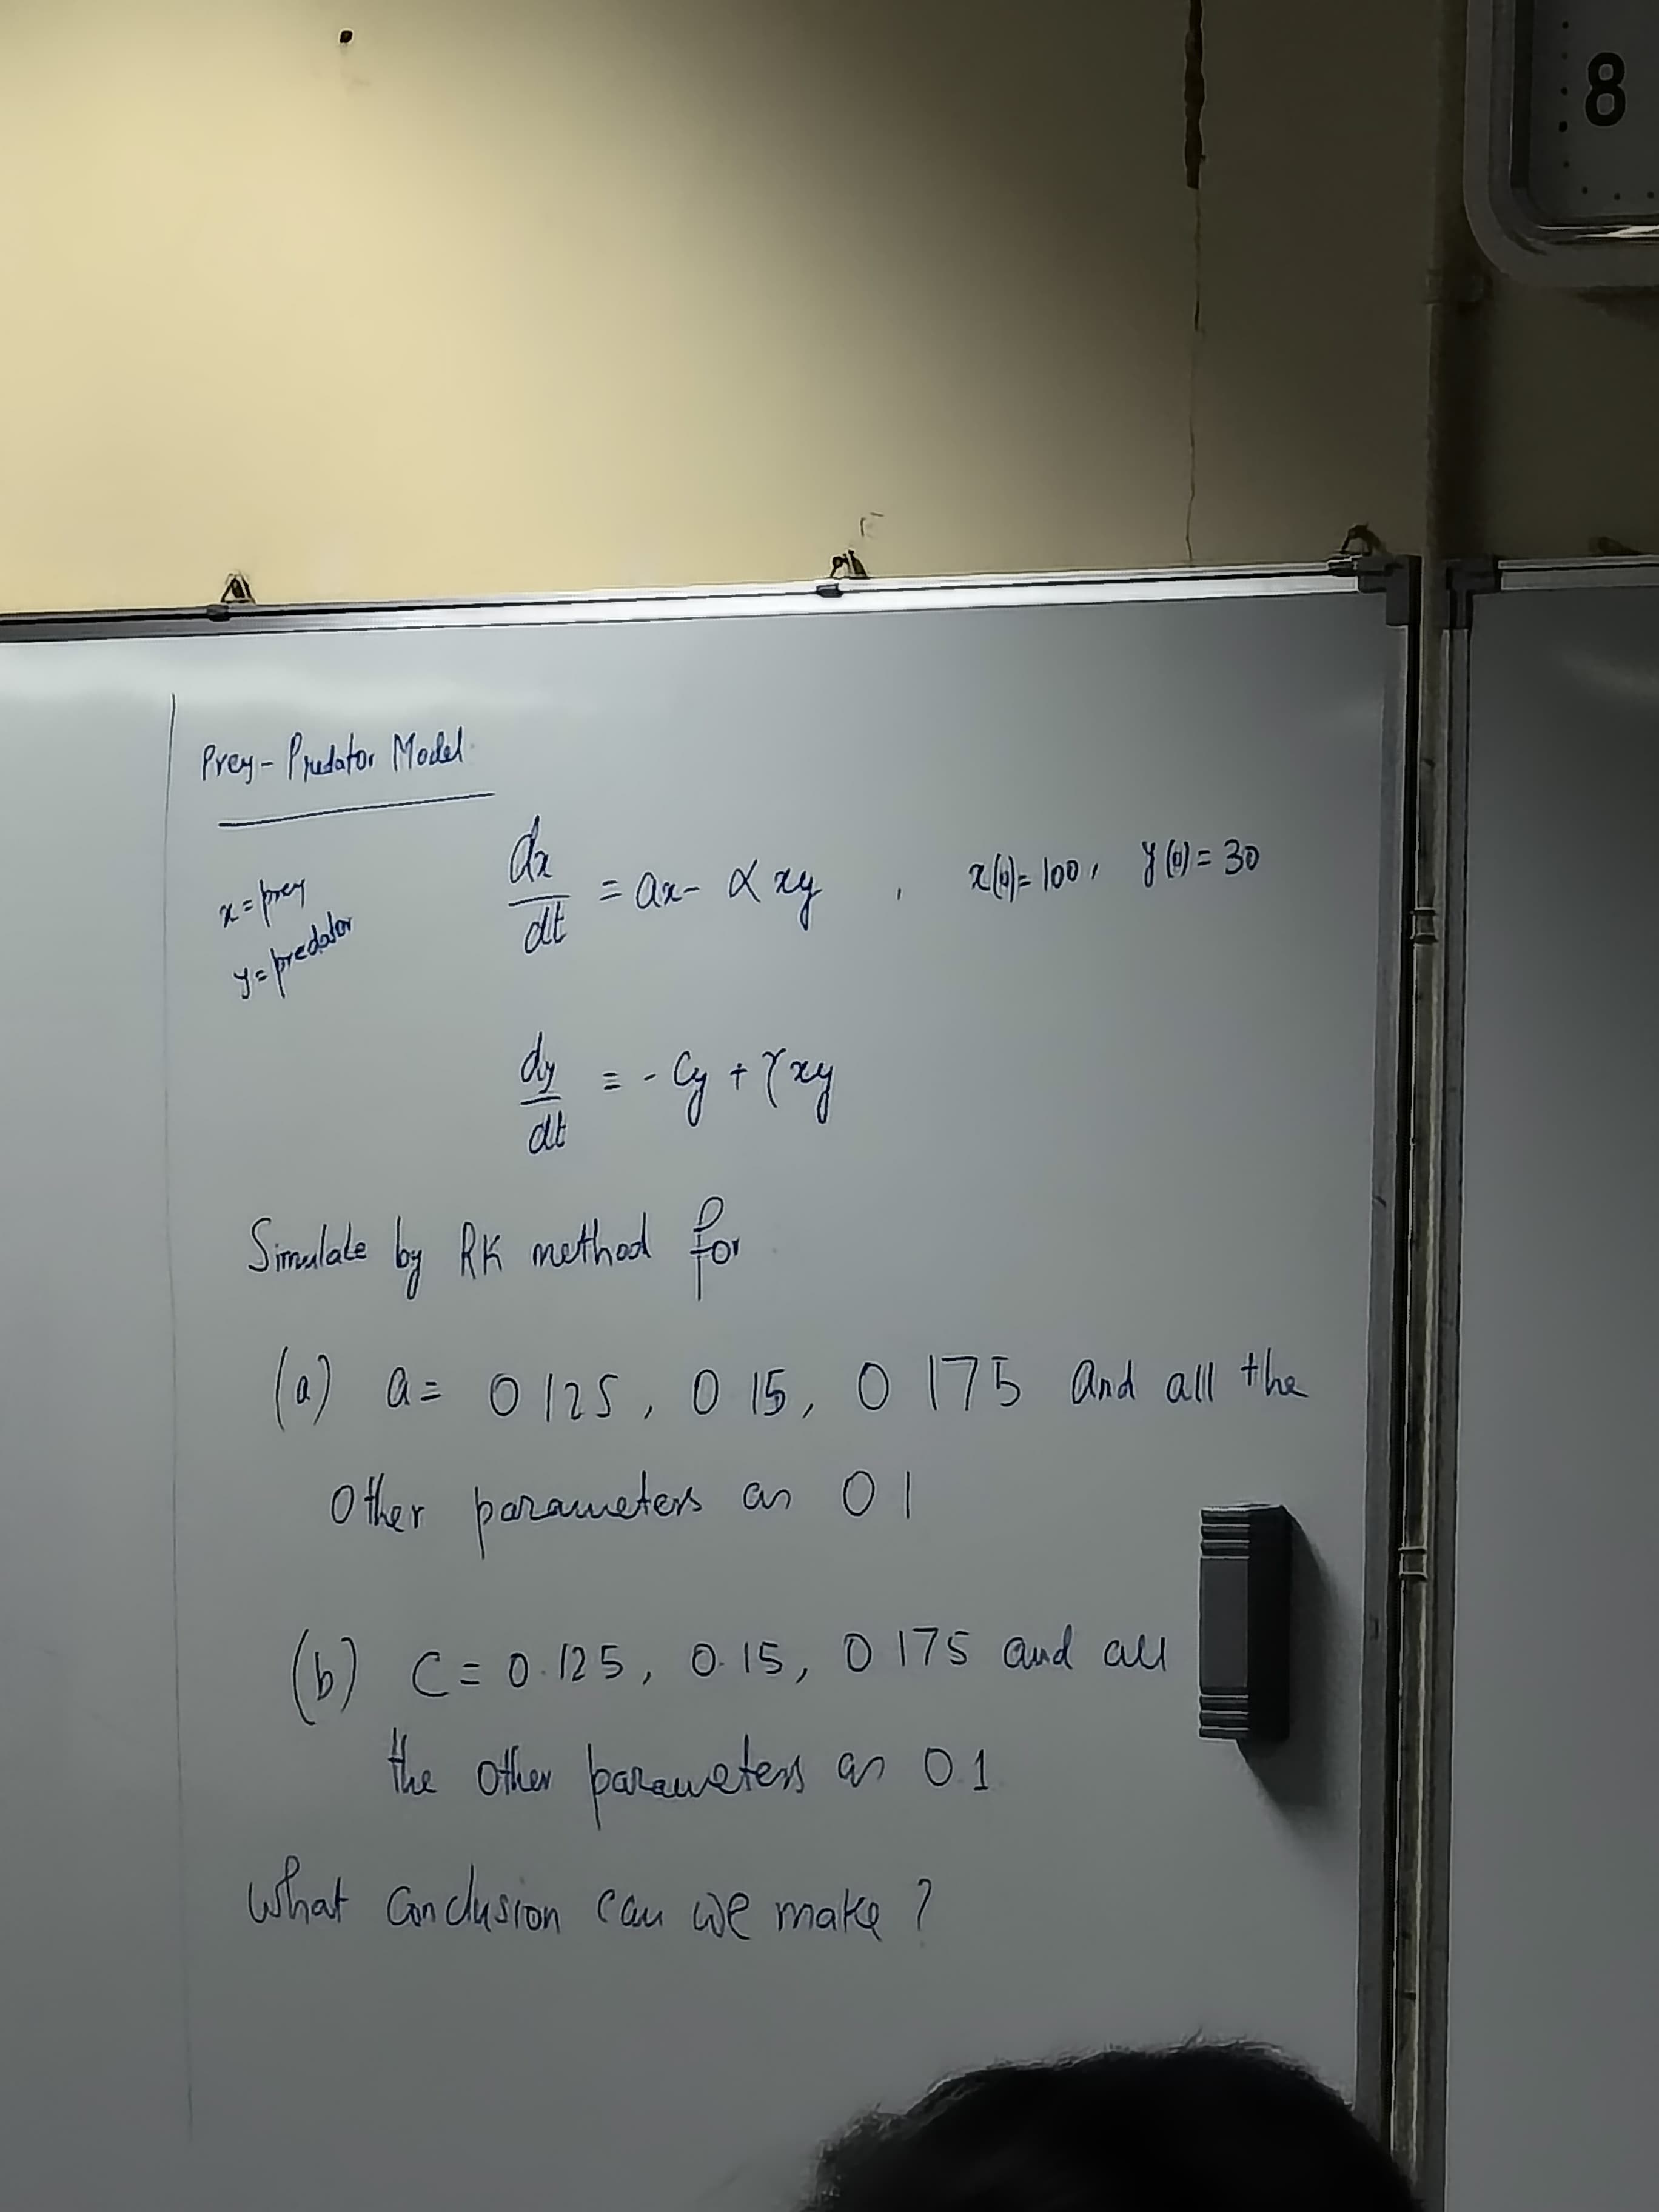 8
Prey - Predator Model
x = prey
y = predator
dx/dt = ax - αxy , x(0) = 100, y(0) = 30
dy/dt = - Cy + γxy
Simulate by RK method for
(a) a = 0 125, 0 15, 0 175 and all the
other parameters as 0 1
(b) C = 0.125, 0.15, 0 175 and all
the other parameters as 0.1
What conclusion can we make ?